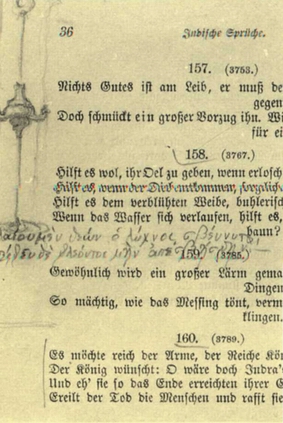 36 Indische Sprüche.
157. (3753.)
Nichts Gutes ist am Leib, er muß de
gegen
Doch schmückt ein großer Vorzug ihn. Wi
für ei
158. (3767.)
Hilft es wol, ihr Oel zu geben, wenn erlosch
Hilft es, wenn der Dieb entkommen,
Hilft es dem verblühten Weibe, buhlerisc
Wenn das Wasser sich verlaufen, hilft es,
baun?
ὁ λύχνος
159. (3785.)
Gewöhnlich wird ein großer Lärm gema
Dingen
So mächtig, wie das Messing tönt, verm
klingen.
160. (3789.)
Es möchte reich der Arme, der Reiche Kön
Der König wünscht: O wäre doch Indra's
Und eh' sie so das Ende erreichten ihrer G
Ereilt der Tod die Menschen und rafft sie